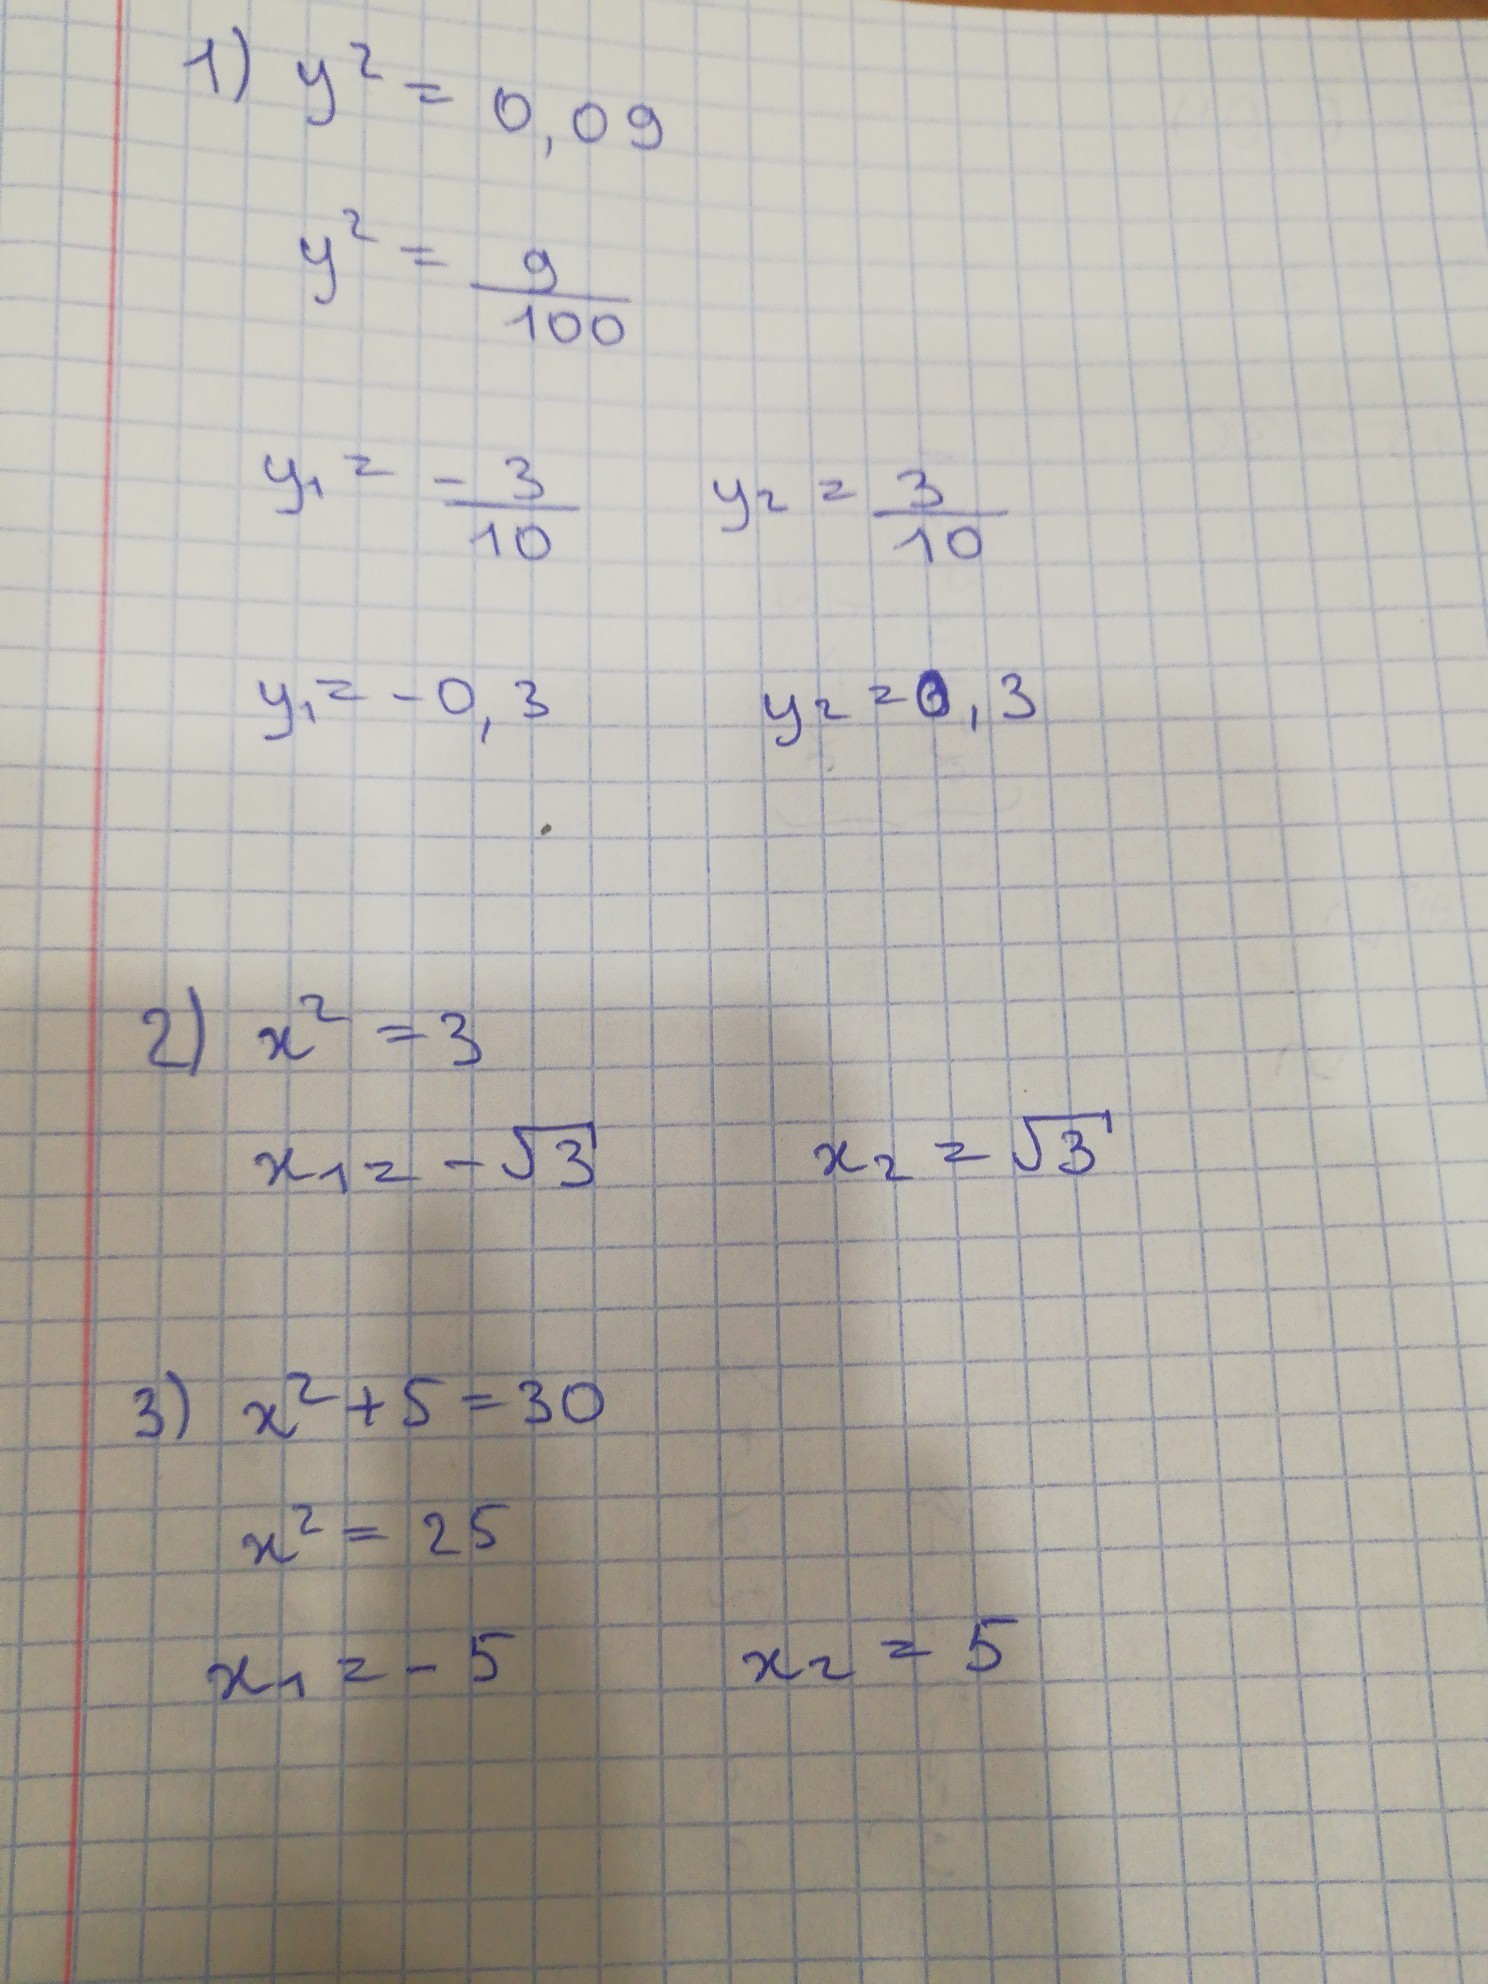 1) y² = 0,09
y² = 9/100
y₁ = -3/10 y₂ = 3/10
y₁ = -0,3 y₂ = 0,3
2) x² = 3
x₁ = -√3 x₂ = √3
3) x² + 5 = 30
x² = 25
x₁ = -5 x₂ = 5